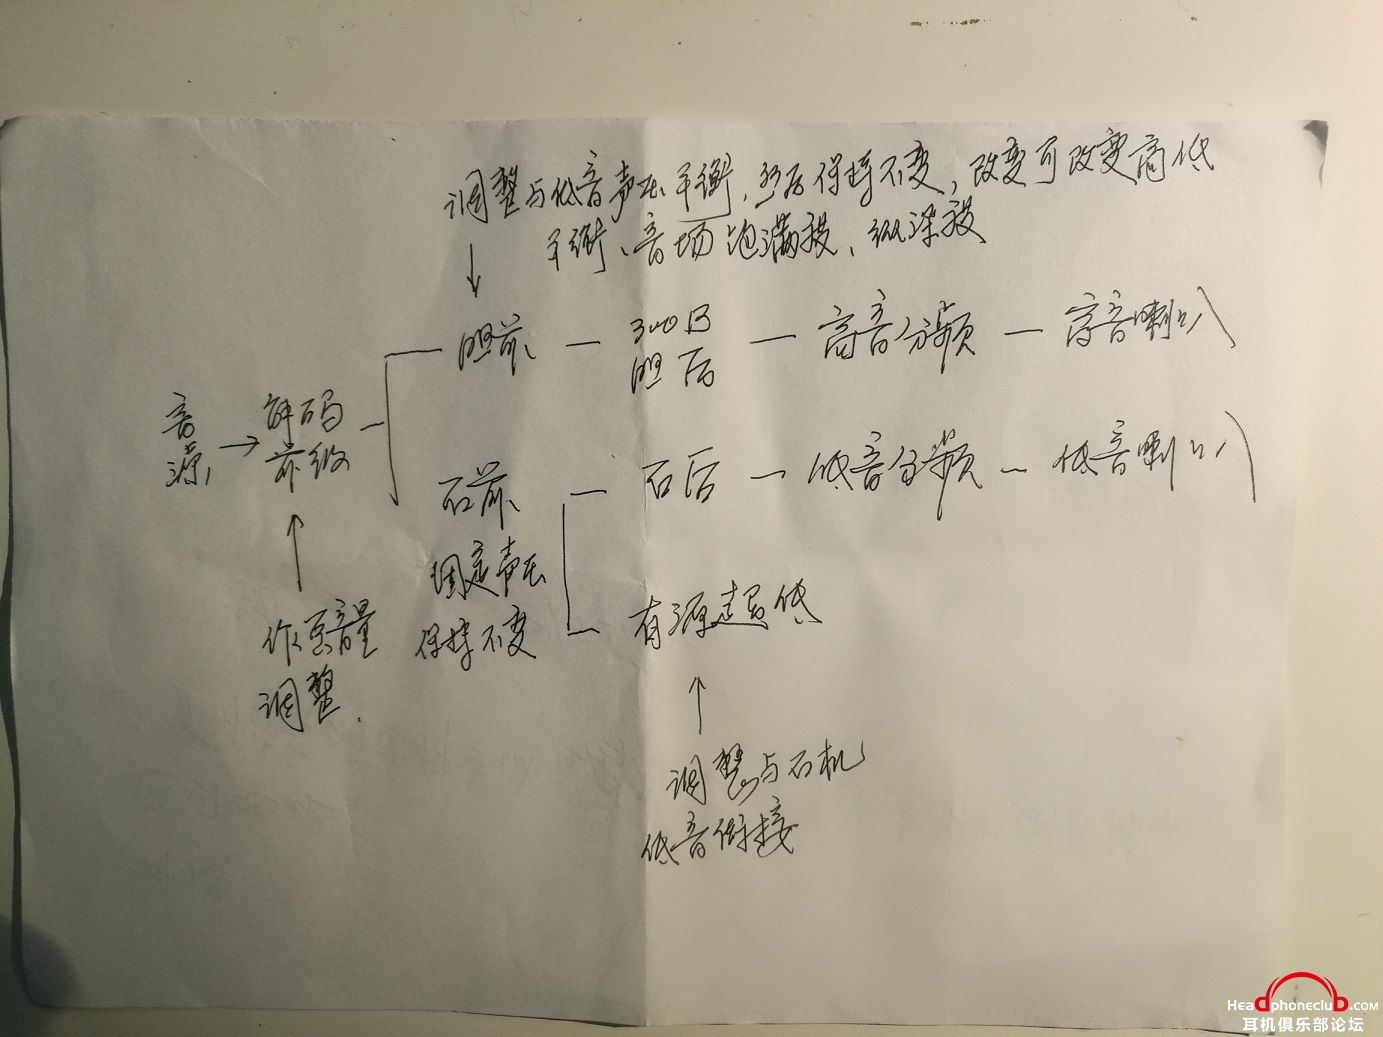 调整与低音声压平衡,然后保持不变,改变可改变高低
平衡、音场饱满度、纵深度
胆前 — 300B — 高音分频 — 高音喇叭
胆后
音源 → 解码
前级
石前 — 石后 — 低音分频 — 低音喇叭
固定声压
保持不变
有源超低
作音量
调整.
调整与石机
低音衔接
Headphoneclub.com
耳机俱乐部论坛